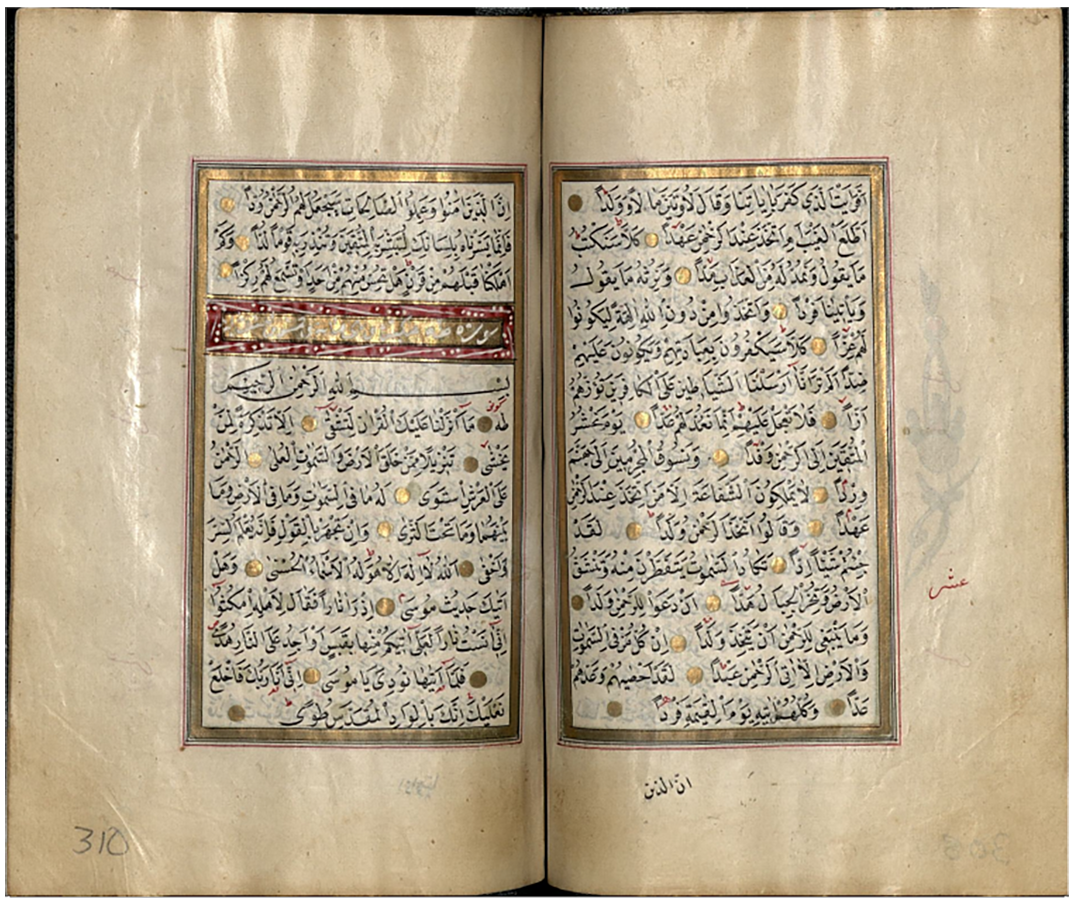 افرايت الذي كفر باياتنا وقال لاوتين مالا وولدا
اطلع الغيب ام اتخذ عند الرحمن عهدا كلا سنكتب
ما يقول ونمد له من العذاب مدا ونرثه ما يقول
وياتينا فردا واتخذوا من دون الله الهة ليكونوا
لهم عزا كلا سيكفرون بعبادتهم ويكونون عليهم
ضدا الم تر انا ارسلنا الشياطين على الكافرين تؤزهم
ازا فلا تعجل عليهم انما نعد لهم عدا يوم نحشر
المتقين الى الرحمن وفدا ونسوق المجرمين الى جهنم
وردا لا يملكون الشفاعة الا من اتخذ عند الرحمن
عهدا وقالوا اتخذ الرحمن ولدا لقد
جئتم شيئا ادا تكاد السموت يتفطرن منه وتنشق
الارض وتخر الجبال هدا ان دعوا للرحمن ولدا
وما ينبغي للرحمن ان يتخذ ولدا ان كل من في السموت
والارض الا اتي الرحمن عبدا لقد احصيهم وعدهم
عدا وكلهم اتيه يوم القيمة فردا
عشر
ان الذين
ان الذين امنوا وعملوا الصالحات سيجعل لهم الرحمن ودا
فانما يسرناه بلسانك لتبشر به المتقين وتنذر به قوما لدا وكم
اهلكنا قبلهم من قرن هل تحس منهم من احد او تسمع لهم ركزا
سورة طه
بسم الله الرحمن الرحيم
كوفي
طه ما انزلنا عليك القران لتشقى الا تذكرة لمن
يخشى تنزيلا ممن خلق الارض والسموت العلى الرحمن
على العرش استوى له ما في السموت وما في الارض وما
بينهما وما تحت الثرى وان تجهر بالقول فانه يعلم السر
واخفى الله لا اله الا هو له الاسماء الحسنى وهل
اتيك حديث موسى اذ را نارا فقال لاهله امكثوا
اني انست نارا لعلي اتيكم منها بقبس او اجد على النار هدى
فلما اتيها نودي يا موسى اني انا ربك فاخلع
نعليك انك بالواد المقدس طوى
310